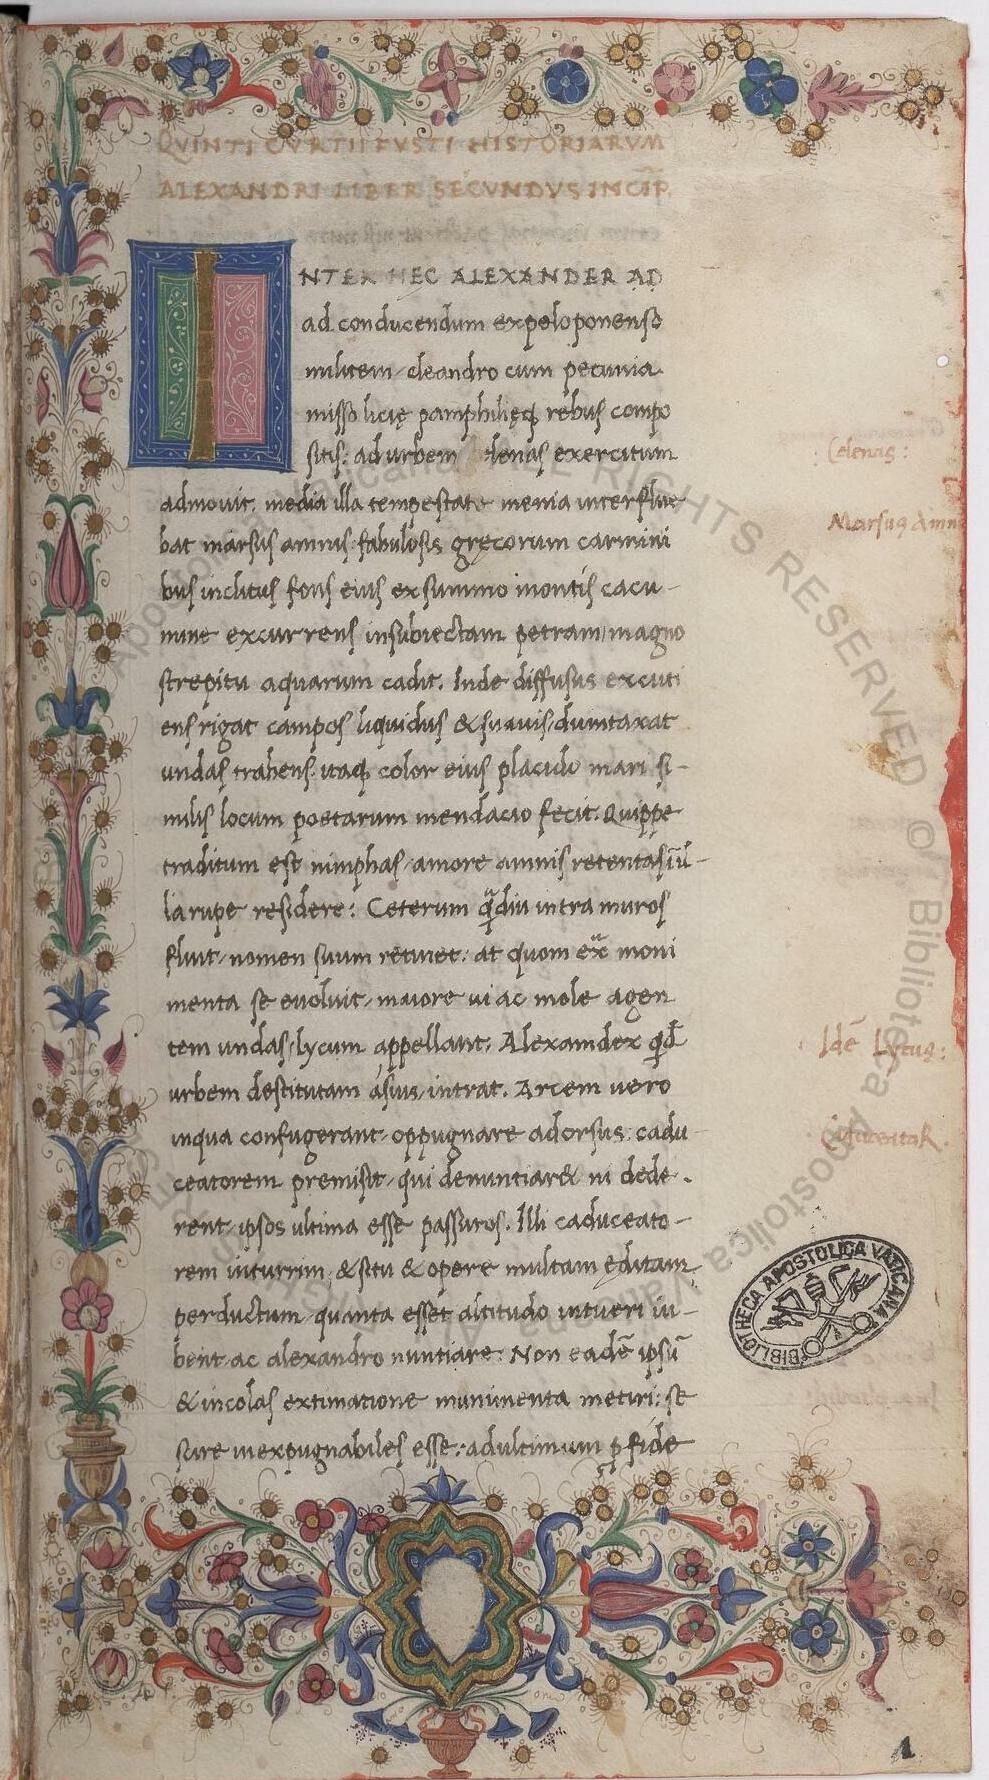 QVINTI CVRTII FVSTI HISTORIARVM
ALEXANDRI LIBER SECVNDVS INCIP̄
INTER HEC ALEXANDER AD
ad conducendum expeloponenso
militem cleandro cum pecunia
misso licię pamphilięq rebus compo
sitis: ad urbem lenas exercitum
admovit. media illa tempestate menia interflue
bat marsus amnis fabulosis gręcorum carmini
bus inclitus fons eius exsummo montis cacu-
mine excurrens insubiectam petram magno
strepitu aquarum cadit. Inde diffusus excuti
ens rigat campos liquidus & suavis dumtaxat
undas trahens. itaq color eius placido mari si-
milis locum poetarum mendacio fecit. Quippe
traditum est nimphas amore amnis retentas ī il-
la rupe residere: Ceterum q̄diu intra muros
fluit nomen suum retinet. at quom ex̄ moni
menta se evoluit maiore ui ac mole agen
tem undas lycum appellant. Alexander qd̄
urbem destitutam a suis intrat. Arcem vero
inqua confugerant oppugnare adorsus. cadu
ceatorem premisit qui denuntiar& ni dede.
rent ipsos ultima esse passuros. Illi caduceato-
rem inturrim & situ & opere multam editam
perductum quanta esset altitudo intueri iu-
bent ac alexandro nuntiare. Non eadē ipsū
& incolas extimatione munimenta metiri: se
scire inexpugnabiles esse: adultimum p̱ fide
Celenas:
Marsus Amn
Idē Lycus:
BIBLIOTHECA APOSTOLICA VATICANA
1
RIGHTS RESERVED © Biblioteca Apostolica Vaticana